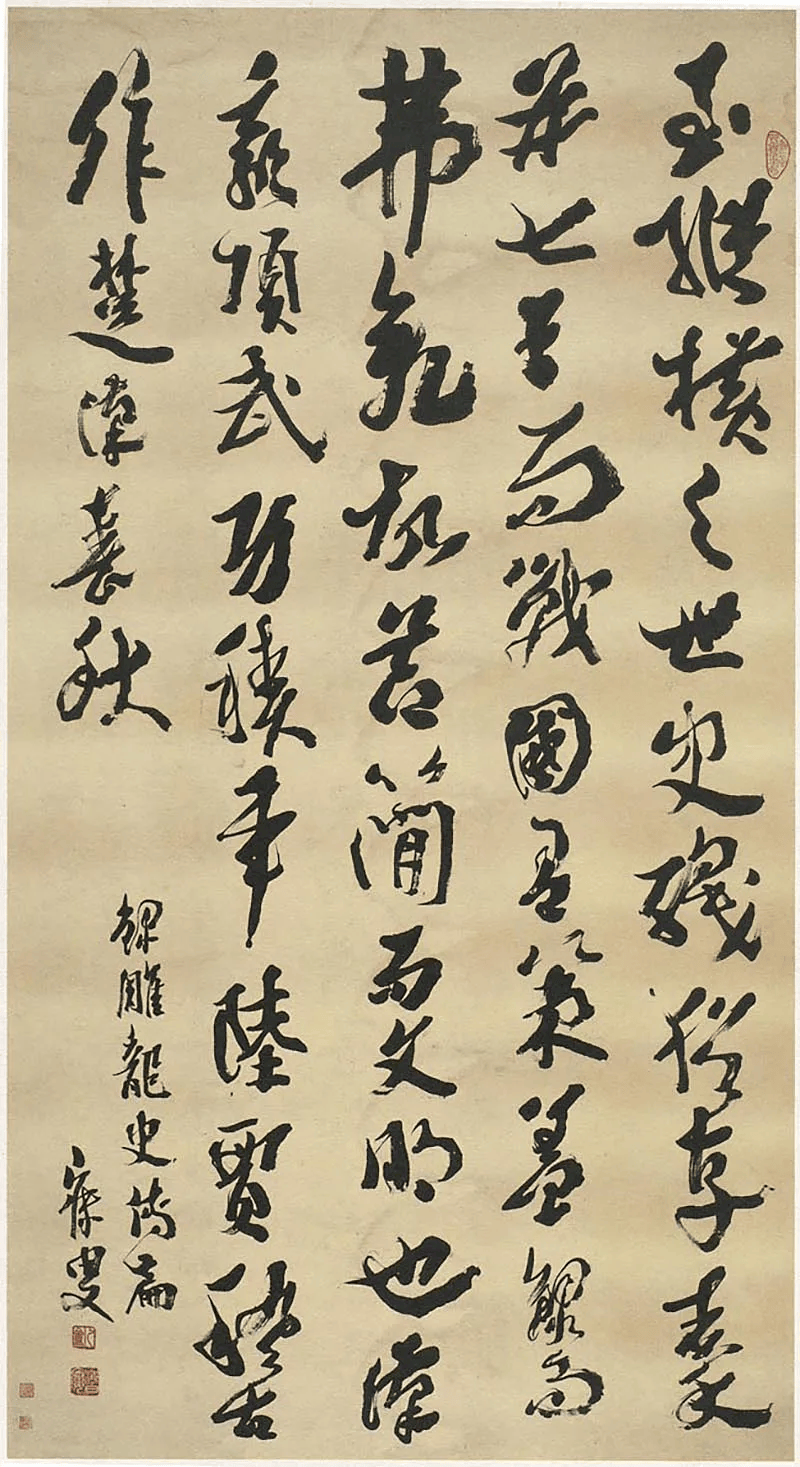 至縱橫之世史職猶存秦
并七王而戰國有策蓋錄而
弗故簡而文明也漢
嬴項武功積年陸賈稽古
作楚漢春秋
錄雕龍史傳篇
寐叟